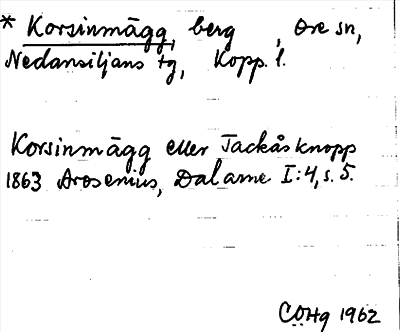 * Korsinmägg, berg, Ore sn,
Nedansiljans tg, Kopp. l.
Korsinmägg eller Tackåsknopp
1863 Arosenius, Dalarne I:4, s. 5.
CÖHg 1962